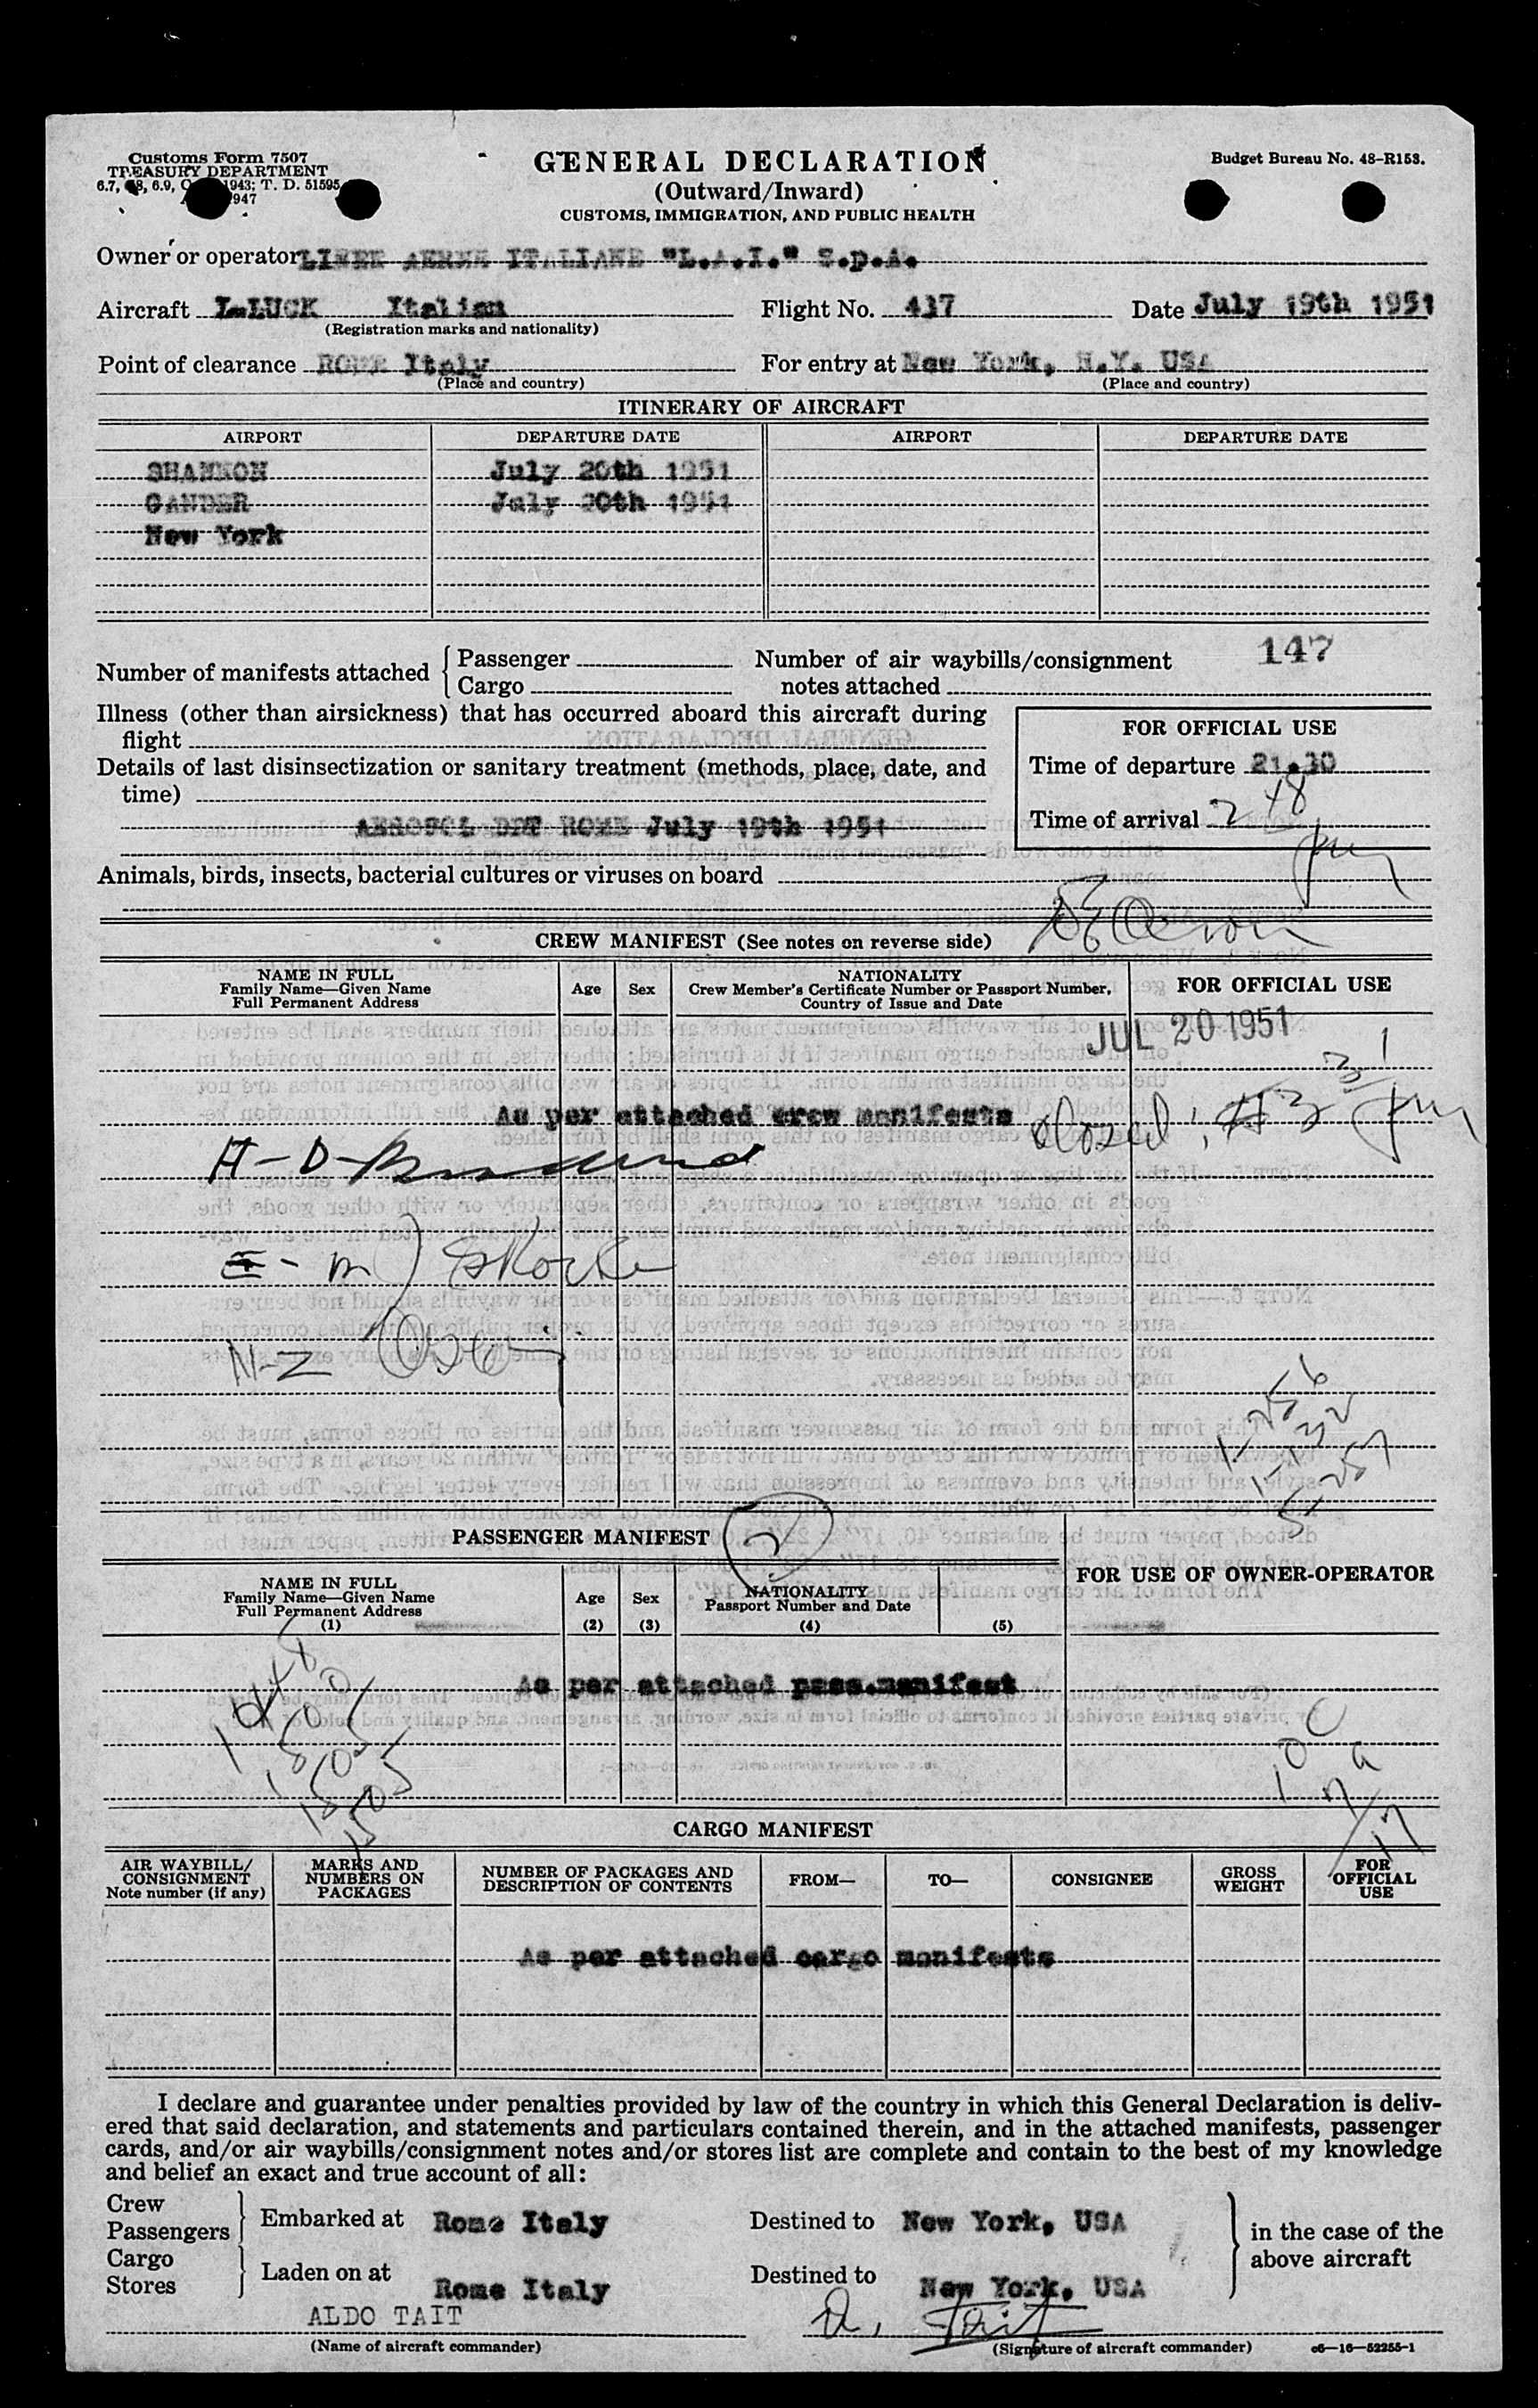 Customs Form 7507
TREASURY DEPARTMENT
6.7, 6.8, 6.9, 1943; T. D. 51595
1947
GENERAL DECLARATION
(Outward/Inward)
CUSTOMS, IMMIGRATION, AND PUBLIC HEALTH
Budget Bureau No. 48-R153.
Owner or operator LINEE AEREE ITALIANE "L.A.I." S.p.A.
Aircraft I-LUCK Italian Flight No. 417 Date July 19th 1951
(Registration marks and nationality)
Point of clearance ROME Italy For entry at New York, N.Y. USA
(Place and country) (Place and country)
ITINERARY OF AIRCRAFT
AIRPORT DEPARTURE DATE AIRPORT DEPARTURE DATE
SHANNON July 20th 1951
GANDER July 20th 1951
New York
147
Number of manifests attached Passenger Number of air waybills/consignment
Cargo notes attached
Illness (other than airsickness) that has occurred aboard this aircraft during
flight
FOR OFFICIAL USE
Details of last disinsectization or sanitary treatment (methods, place, date, and
time)
Time of departure 21.30
AEROSOL DDT ROME July 19th 1951
Time of arrival 2 48
Animals, birds, insects, bacterial cultures or viruses on board
CREW MANIFEST (See notes on reverse side)
NAME IN FULL
Family Name—Given Name
Full Permanent Address
Age Sex
NATIONALITY
Crew Member's Certificate Number or Passport Number,
Country of Issue and Date
FOR OFFICIAL USE
JUL 20 1951
As per attached crew manifests
H-D-
E-M
N-Z
PASSENGER MANIFEST 2
NAME IN FULL
Family Name—Given Name
Full Permanent Address
(1)
Age
(2)
Sex
(3)
NATIONALITY
Passport Number and Date
(4) (5)
FOR USE OF OWNER-OPERATOR
As per attached pass.manifest
1505
CARGO MANIFEST
AIR WAYBILL/
CONSIGNMENT
Note number (if any)
MARKS AND
NUMBERS ON
PACKAGES
NUMBER OF PACKAGES AND
DESCRIPTION OF CONTENTS
FROM—
TO—
CONSIGNEE
GROSS
WEIGHT
FOR
OFFICIAL
USE
As per attached cargo manifests
I declare and guarantee under penalties provided by law of the country in which this General Declaration is deliv-
ered that said declaration, and statements and particulars contained therein, and in the attached manifests, passenger
cards, and/or air waybills/consignment notes and/or stores list are complete and contain to the best of my knowledge
and belief an exact and true account of all:
Crew
Passengers Embarked at Rome Italy Destined to New York, USA in the case of the
Cargo above aircraft
Stores Laden on at Rome Italy Destined to New York, USA
ALDO TAIT A. Tait
(Name of aircraft commander) (Signature of aircraft commander) c6—16—52255-1